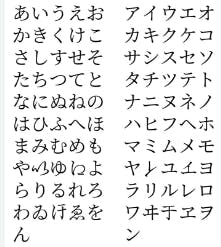 あいうえお　アイウエオ
かきくけこ　カキクケコ
さしすせそ　サシスセソ
たちつてと　タチツテト
なにぬねの　ナニヌネノ
はひふへほ　ハヒフヘホ
まみむめも　マミムメモ
や𛀆ゆ𛀁よ　ヤ𛄠ユ𛄡ヨ
らりるれろ　ラリルレロ
わゐ𛄟ゑを　ワヰ𛄢ヱヲ
ん　ン